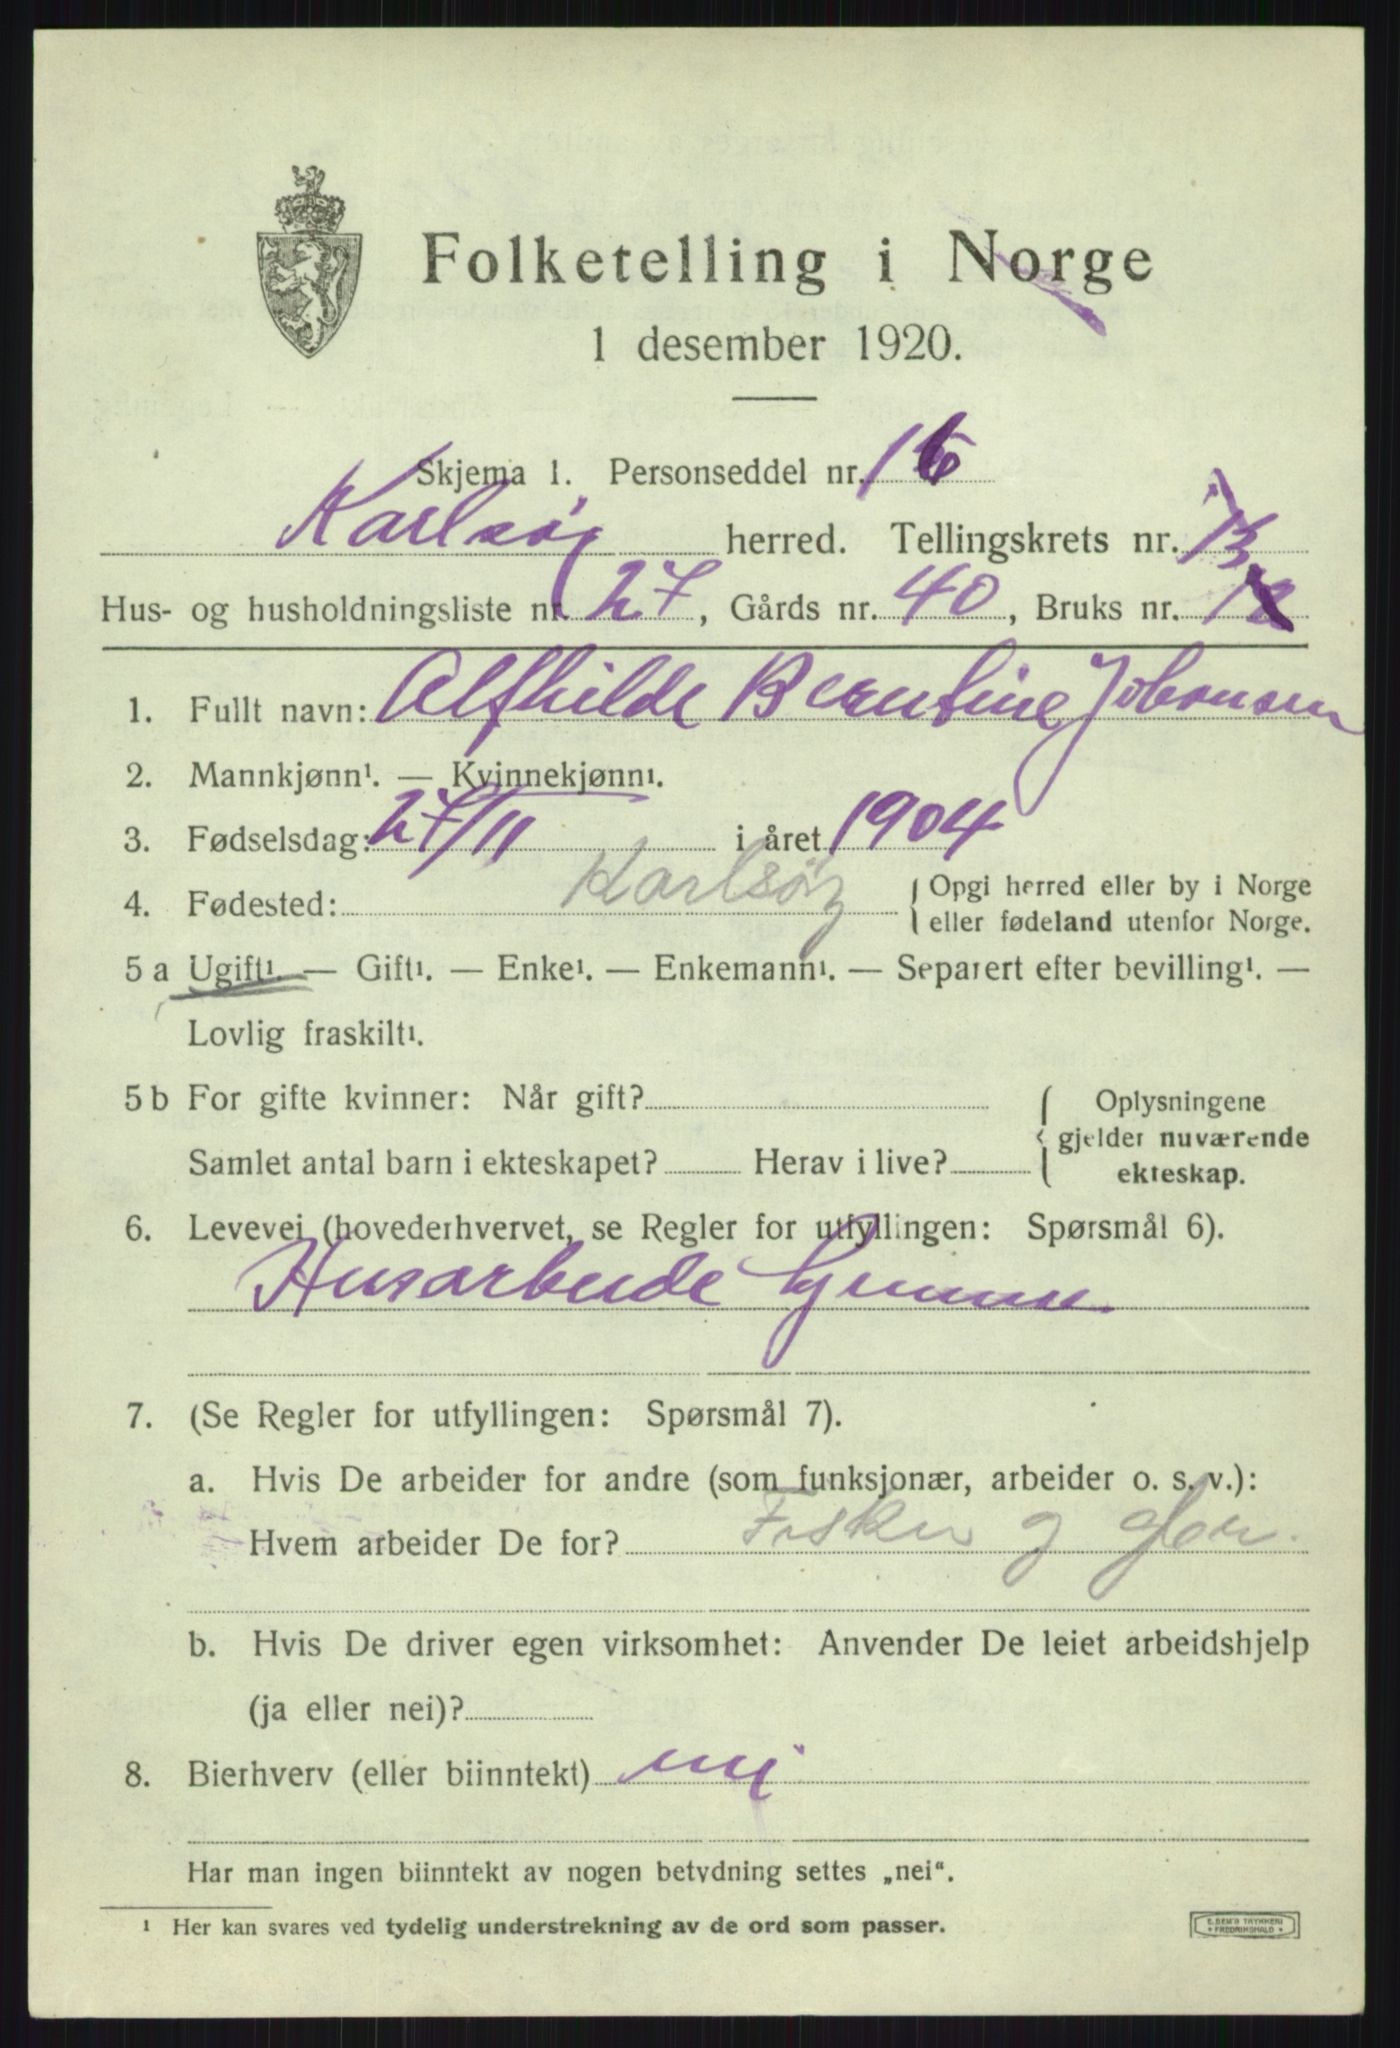 Folketelling i Norge
1 desember 1920.
Skjema 1. Personseddel nr. 16
Karlsøy herred. Tellingskrets nr. 13
Hus- og husholdningsliste nr. 27, Gårds nr. 40, Bruks nr. 12
1. Fullt navn: Alfhilde Berntine Johansen
2. Mannkjønn¹. — Kvinnekjønn¹.
3. Fødselsdag: 27/11 i året 1904
4. Fødested: Karlsøy { Opgi herred eller by i Norge
eller fødeland utenfor Norge.
5 a Ugift¹. — Gift¹. — Enke¹. — Enkemann¹. — Separert efter bevilling¹. —
Lovlig fraskilt¹.
5 b For gifte kvinner: Når gift? { Oplysningene
gjelder nuværende
Samlet antal barn i ekteskapet? Herav i live? ekteskap.
6. Levevei (hovederhvervet, se Regler for utfyllingen: Spørsmål 6).
Husarbeide hjemme
7. (Se Regler for utfyllingen: Spørsmål 7).
a. Hvis De arbeider for andre (som funksjonær, arbeider o. s. v.):
Hvem arbeider De for? Fisker og
b. Hvis De driver egen virksomhet: Anvender De leiet arbeidshjelp
(ja eller nei)?
8. Bierhverv (eller biinntekt) nei
Har man ingen biinntekt av nogen betydning settes „nei“.
¹ Her kan svares ved tydelig understrekning av de ord som passer.
E. SEM'S TRYKKERI
FREDRIKSHALD